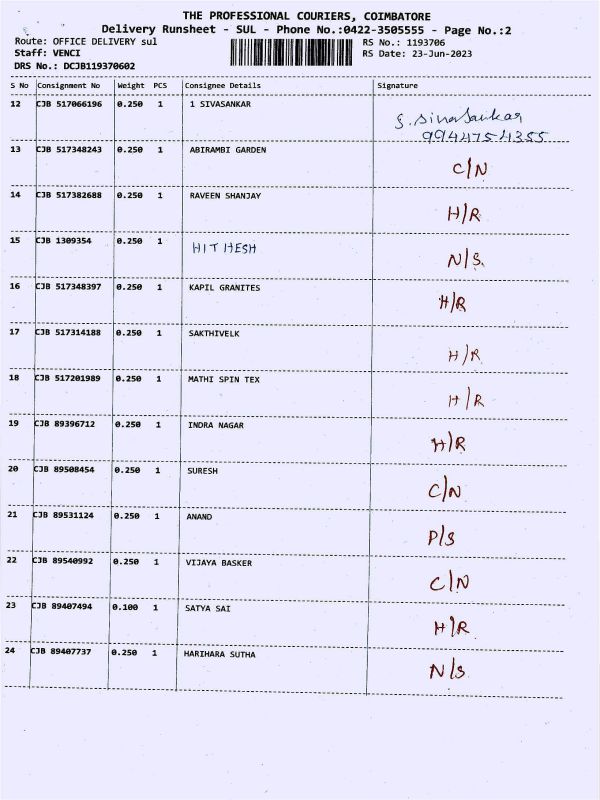 THE PROFESSIONAL COURIERS, COIMBATORE
Delivery Runsheet - SUL - Phone No.:0422-3505555 - Page No.:2
Route: OFFICE DELIVERY sul RS No.: 1193706
Staff: VENCI RS Date: 23-Jun-2023
DRS No.: DCJB119370602
S No Consignment No Weight PCS Consignee Details Signature
12 CJB 517066196 0.250 1 1 SIVASANKAR S. Sivasankar
9944754355
13 CJB 517348243 0.250 1 ABIRAMBI GARDEN C/N
14 CJB 517382688 0.250 1 RAVEEN SHANJAY H/R
15 CJB 1309354 0.250 1 HITHESH N/S
16 CJB 517348397 0.250 1 KAPIL GRANITES H/R
17 CJB 517314188 0.250 1 SAKTHIVELK H/R
18 CJB 517201989 0.250 1 MATHI SPIN TEX H/R
19 CJB 89396712 0.250 1 INDRA NAGAR H/R
20 CJB 89508454 0.250 1 SURESH C/N
21 CJB 89531124 0.250 1 ANAND P/S
22 CJB 89540992 0.250 1 VIJAYA BASKER C/N
23 CJB 89407494 0.100 1 SATYA SAI H/R
24 CJB 89407737 0.250 1 HARIHARA SUTHA N/S